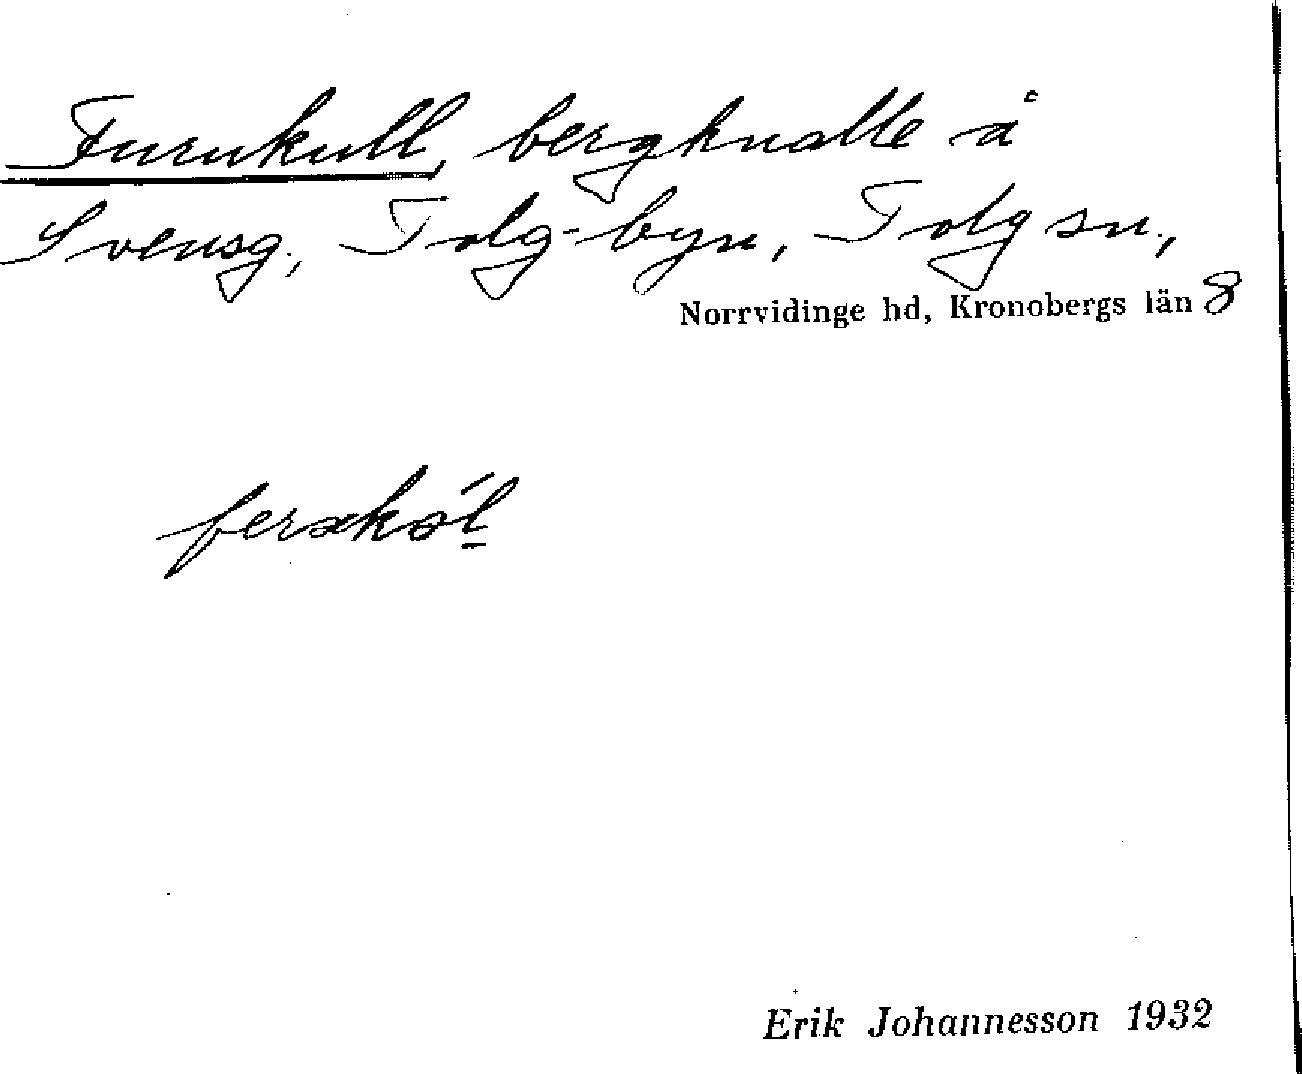 Furukull, bergknalle å
Svensg., Tolg-byn, Tolg sn.,
Norrvidinge hd, Kronobergs län 8
Erik Johannesson 1932